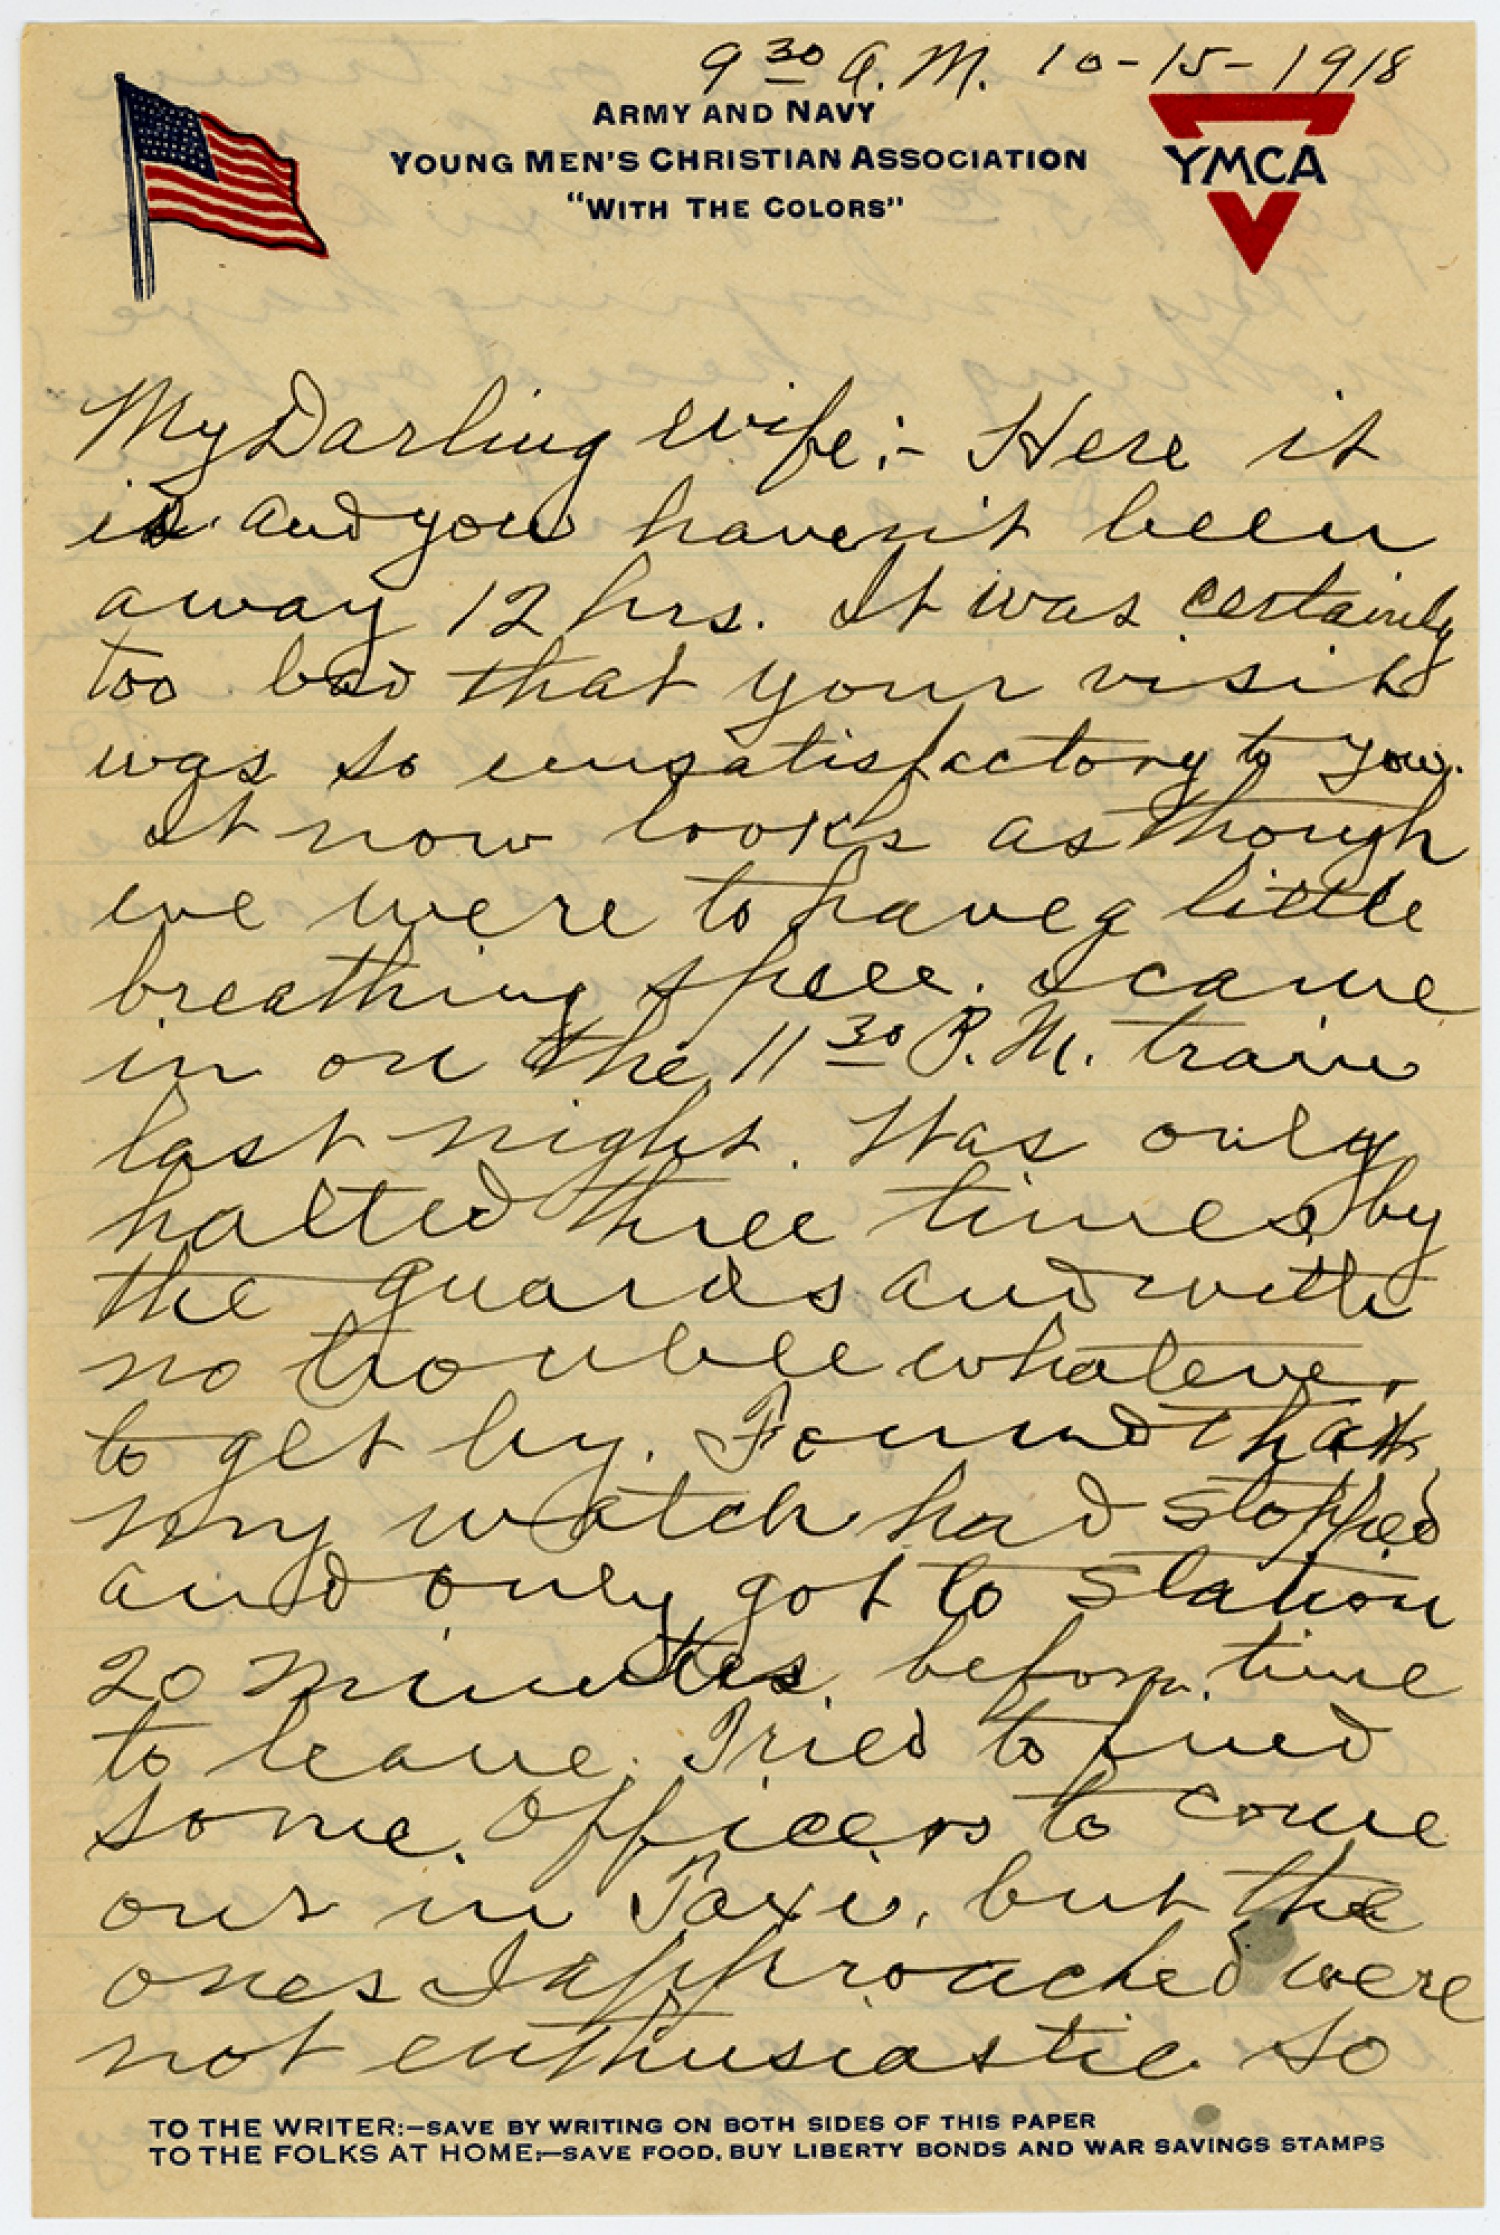 9 30 A.M. 10-15-1918
ARMY AND NAVY
YOUNG MEN'S CHRISTIAN ASSOCIATION
"WITH THE COLORS"
YMCA
My Darling Wife:- Here it
is and you haven't been
away 12 hrs. It was certainly
too bad that your visit
was so unsatisfactory to you.
It now looks as though
we were to have a little
breathing spell. I came
in on the 11 30 P.M. train
last night. Was only
halted three times by
the guards and with
no trouble whatever
to get by. Found that
my watch had stopped
and only got to station
20 minutes before time
to leave. Tried to find
some officers to come
our in Taxi, but the
ones I approached were
not enthusiastic so
TO THE WRITER:—SAVE BY WRITING ON BOTH SIDES OF THIS PAPER
TO THE FOLKS AT HOME:—SAVE FOOD, BUY LIBERTY BONDS AND WAR SAVINGS STAMPS